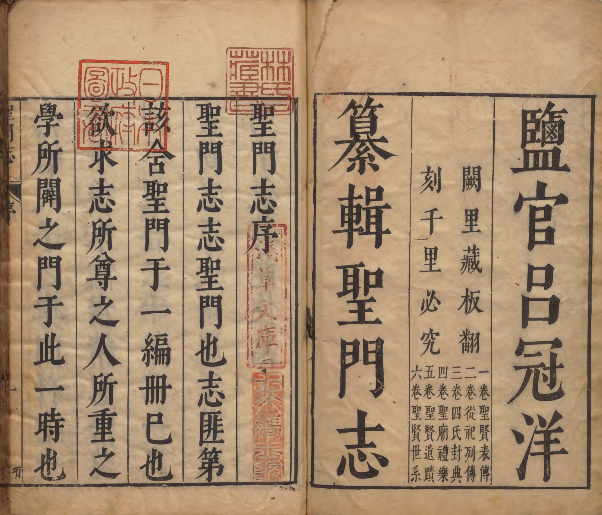 鹽官呂冠洋
闕里藏板翻
刻千里必究
一卷聖賢表傳
二卷從祀列傳
三卷四氏封典
四卷聖廟禮樂
五卷聖賢遺蹟
六卷聖賢世系
纂輯聖門志
聖門志序
聖門志志聖門也志匪第
該舍聖門于一編冊已也
欲求志所尊之人所重之
學所闢之門于此一時也
林氏
藏書
日本
政府
圖書